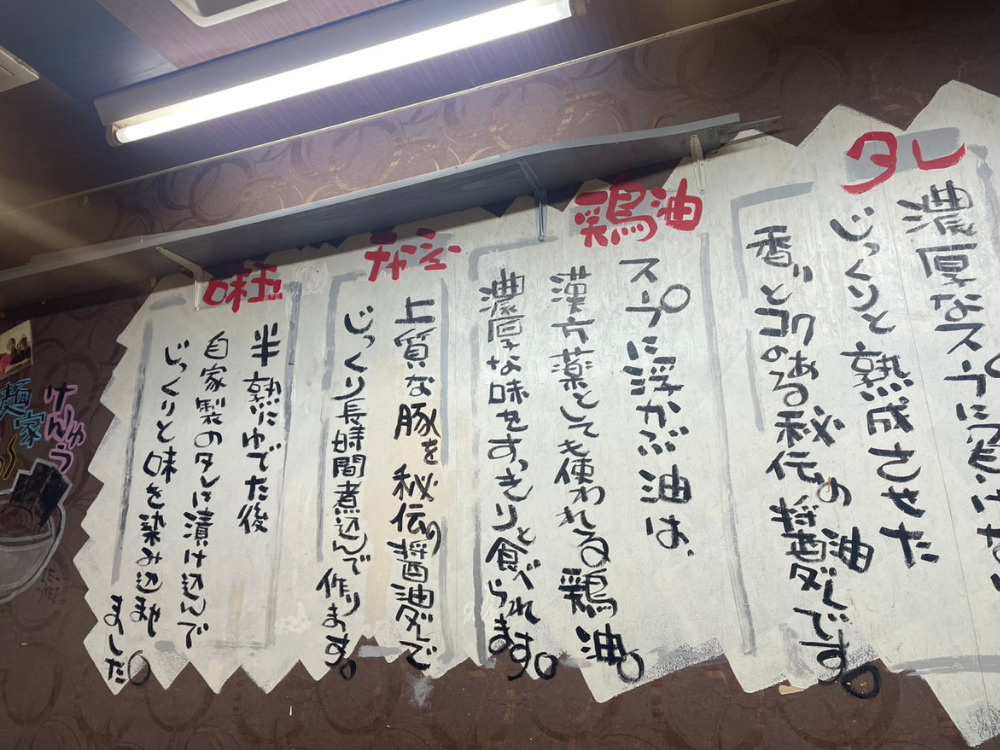 タレ
濃厚なスープに
じっくりと熟成させた
香りとコクのある秘伝の醤油ダレです。
鶏油
スープに浮かぶ油は、
漢方薬としても使われる鶏油。
濃厚な味をすっきりと食べれます。
チャーシュー
上質な豚を秘伝の醤油ダレで
じっくり長時間煮込んで作ります。
味玉
半熟にゆでた後
自家製のタレに漬け込んで
じっくりと味を染み込ませました。
けんゅう
麺家